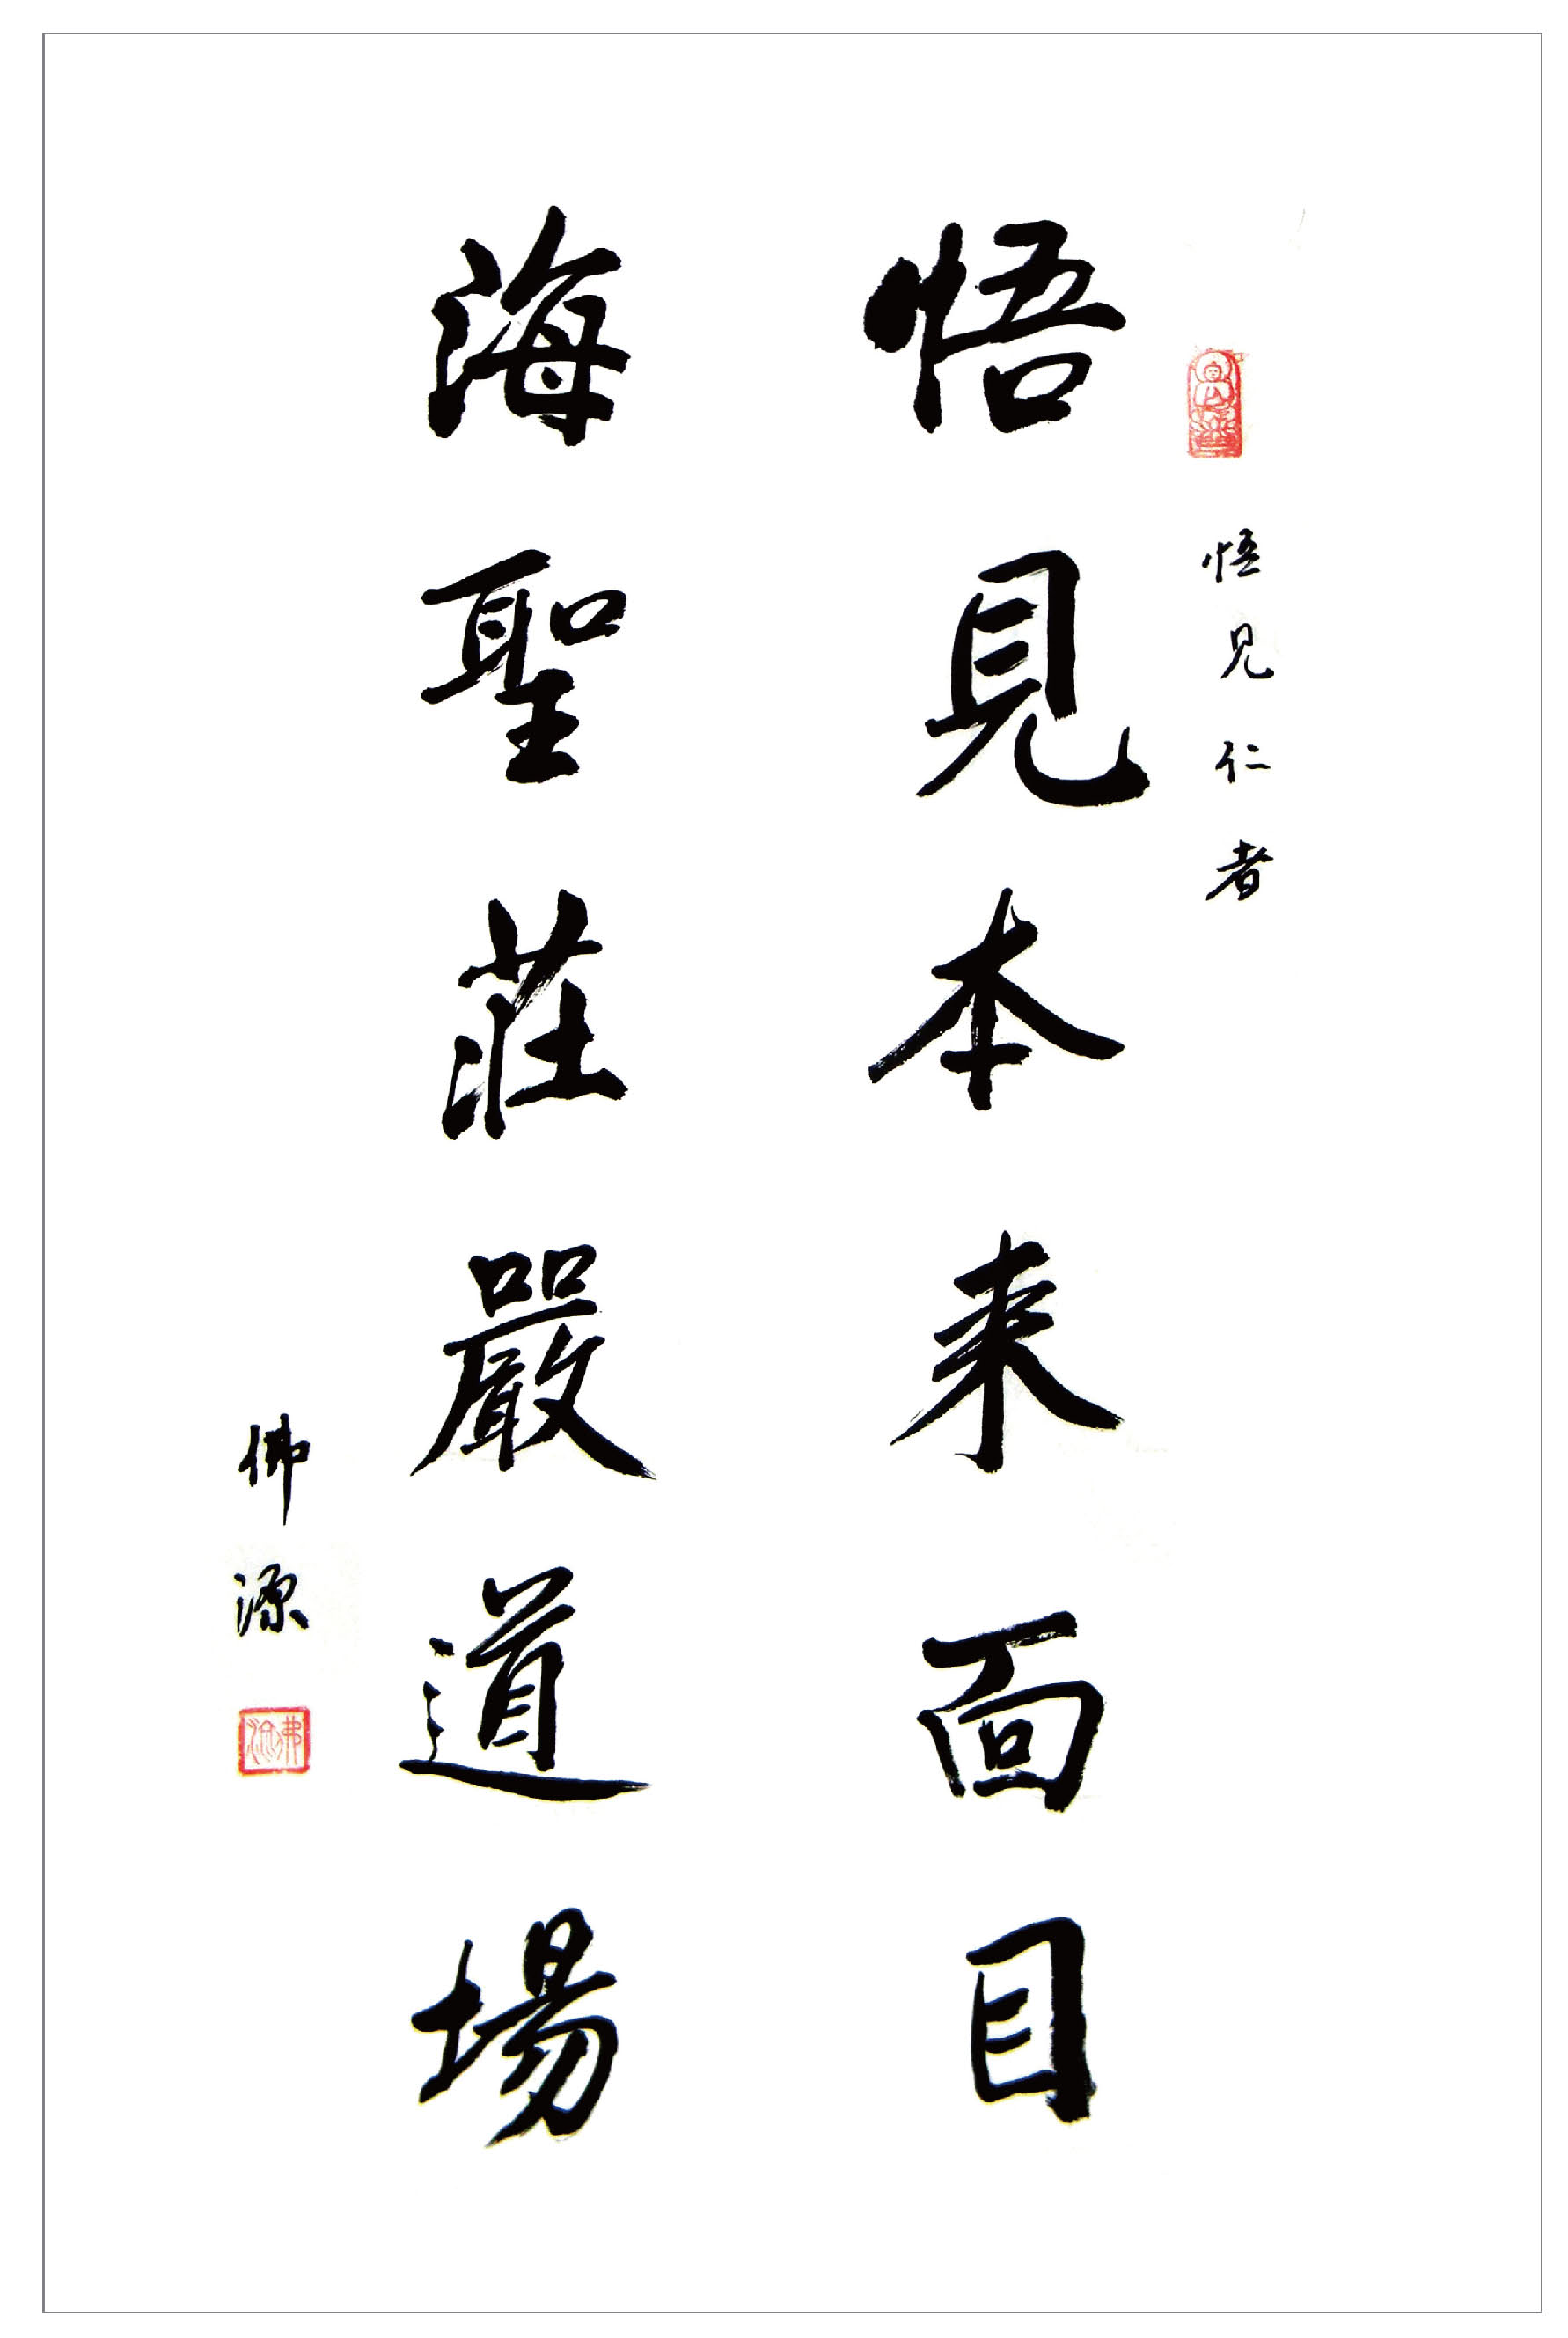 悟見仁者
悟見本来面目
海聖莊嚴道場
佛源
佛源